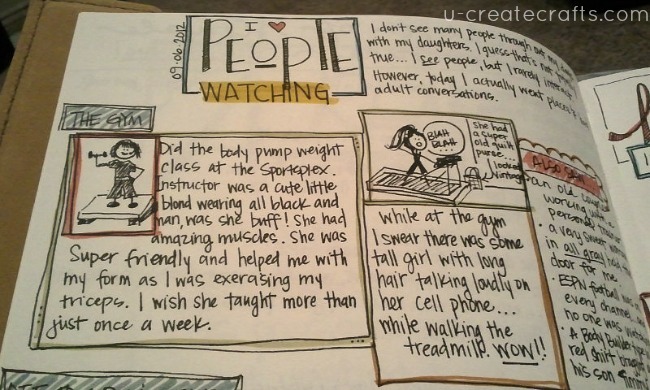 u-createcrafts.com
09.06.2012
I ♥
PEOPLE
WATCHING
I don't see many people through out my
with my daughters. I guess that's not
true... I see people, but I rarely
However, today I actually went places &
adult conversations.
THE GYM
Did the body pump weight
class at the Sportsplex.
Instructor was a cute little
blond wearing all black and
man, was she buff! She had
amazing muscles. She was
Super friendly and helped me with
my form as I was exerasing my
triceps. I wish she taught more than
just once a week.
BLAH
BLAH...
she had
a super
old quilt
purse...
looked
vintage
while at the gym
I swear there was some
tall girl with long
hair talking loudly on
her cell phone...
while walking the
treadmill. WOW!!
Also saw
an old
working
personal
• a very sweet
in all gray
door for me
• ESPN football
every channel
no one was
• A Body Builder
red shirt
his son